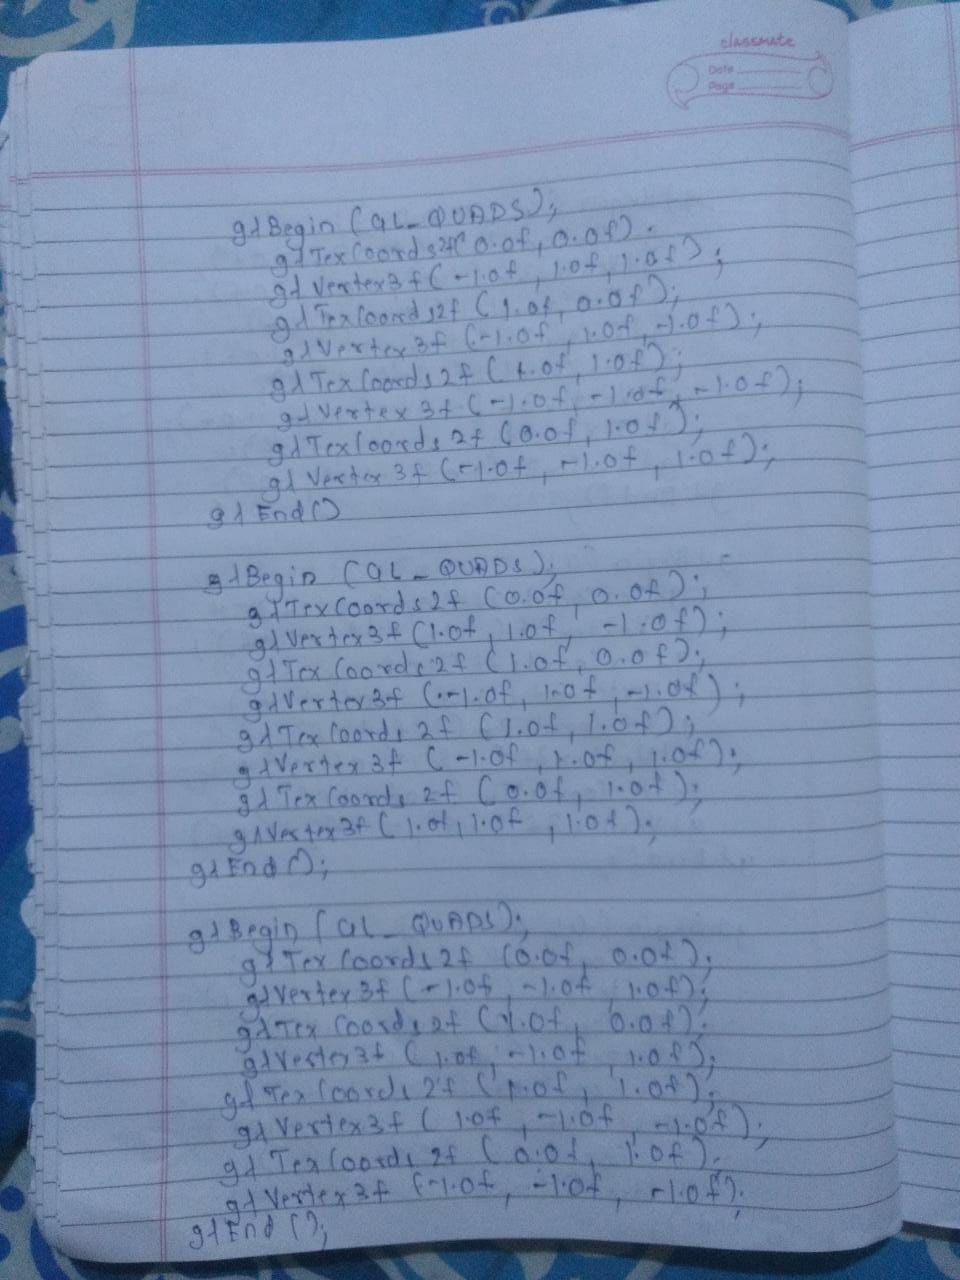 classmate
Date
Page
glBegin (GL_QUADS);
glTexCoords2f(0.0f, 0.0f).
glVertex3f(-1.0f, 1.0f, 1.0f);
glTexCoords2f (1.0f, 0.0f);
glVertex3f (-1.0f, 1.0f, -1.0f);
glTexCoords2f (1.0f, 1.0f);
glVertex3f (-1.0f, -1.0f, -1.0f);
glTexCoords2f (0.0f, 1.0f);
glVertex3f (-1.0f, -1.0f, 1.0f);
glEnd()
glBegin (GL_QUADS);
glTexCoords2f (0.0f, 0.0f);
glVertex3f (1.0f, 1.0f, -1.0f);
glTexCoords2f (1.0f, 0.0f);
glVertex3f (-1.0f, 1.0f, -1.0f);
glTexCoords2f (1.0f, 1.0f);
glVertex3f (-1.0f, 1.0f, 1.0f);
glTexCoords2f (0.0f, 1.0f);
glVertex3f (1.0f, 1.0f, 1.0f);
glEnd();
glBegin (GL_QUADS);
glTexCoords2f (0.0f, 0.0f);
glVertex3f (-1.0f, -1.0f, 1.0f);
glTexCoords2f (1.0f, 0.0f);
glVertex3f (1.0f, -1.0f, 1.0f);
glTexCoords2f (1.0f, 1.0f);
glVertex3f (1.0f, -1.0f, -1.0f);
glTexCoords2f (0.0f, 1.0f);
glVertex3f (-1.0f, -1.0f, -1.0f);
glEnd();